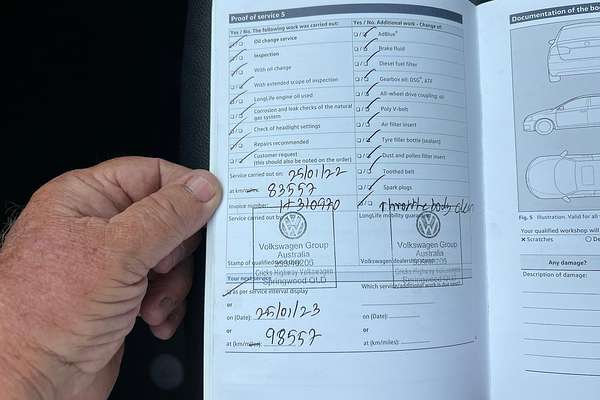 Proof of service 5
Yes / No. The following work was carried out:
Oil change service
Inspection
With oil change
With extended scope of inspection
LongLife engine oil used
Corrosion and leak checks of the natural
gas system
Check of headlight settings
Repairs recommended
Customer request
(this should also be noted on the order)
Service carried out on: 25/01/22
at km/miles: 83557
Invoice number:
Service carried out by:
Volkswagen Group
Australia
Cricks Highway Volkswagen
Springwood QLD
Your next service:
as per service interval display
or
on (Date): 25/01/23
or
at (km/miles): 98557
Yes / No. Additional work - Change of:
AdBlue®
Brake fluid
Diesel fuel filter
Gearbox oil: DSG®, ATF
All-wheel drive coupling: oil
Poly V-belt
Air filter insert
Tyre filler bottle (sealant)
Dust and pollen filter insert
Toothed belt
Spark plugs
Throttle body clean
LongLife mobility guarantee
Volkswagen Group
Australia
Cricks Highway Volkswagen
Springwood QLD
Which service/additional work is due next?
on (Date):
or
at (km/miles):
Documentation of the bo
Fig. 5 Illustration. Valid for all
Your qualified workshop will
× Scratches
Any damage?
Description of damage: